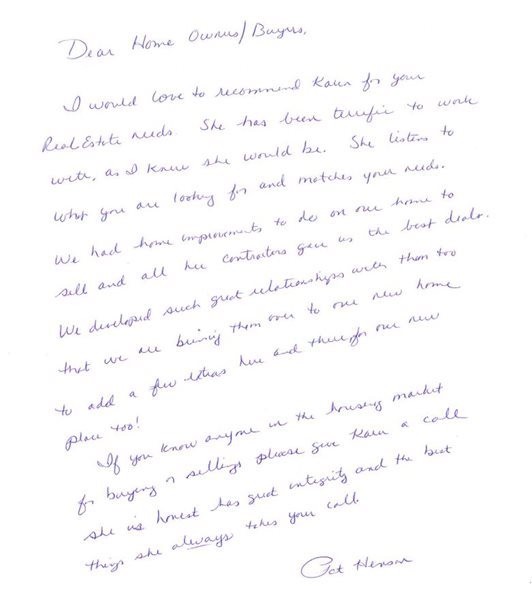 Dear Home Owners/Buyers,
I would love to recommend Karen for your
Real Estate needs. She has been terrific to work
with, as I knew she would be. She listens to
what you are looking for and matches your needs.
We had home improvements to do on our home to
sell and all her contractors gave us the best deals.
We developed such great relationships with them too
that we are bringing them over to our new home
to add a few extras here and there for our new
place too!
If you know anyone in the housing market
for buying or selling please give Karen a call
she is honest has great integrity and the best
things she always takes your call.
Pat Henson